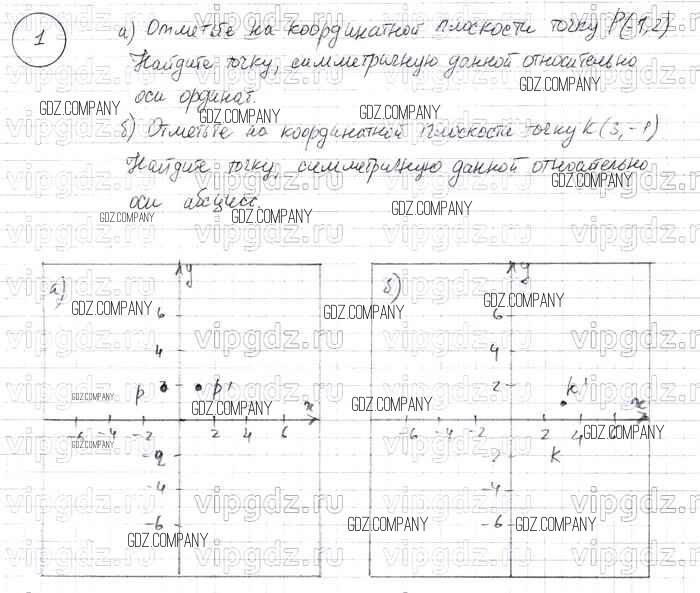 1
а) Отметьте на координатной плоскости точку P(-1,2)
Найдите точку, симметричную данной относительно
оси ординат.
б) Отметьте на координатной плоскости точку K(3,-1)
Найдите точку, симметричную данной относительно
оси абсцисс.
а)
y
6
4
2
P
P'
x
-6 -4 -2 2 4 6
-2
-4
-6
б)
y
6
4
2
K'
x
-6 -4 -2 2 4 6
K
-2
-4
-6
GDZ.COMPANY
vipgdz.ru